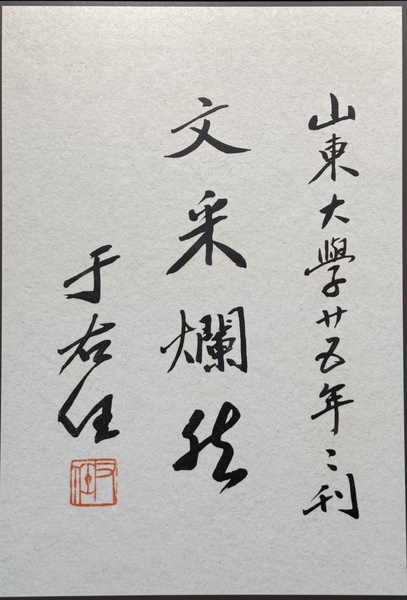 山東大學廿五年〻刊
文采爛然
于右任
右任